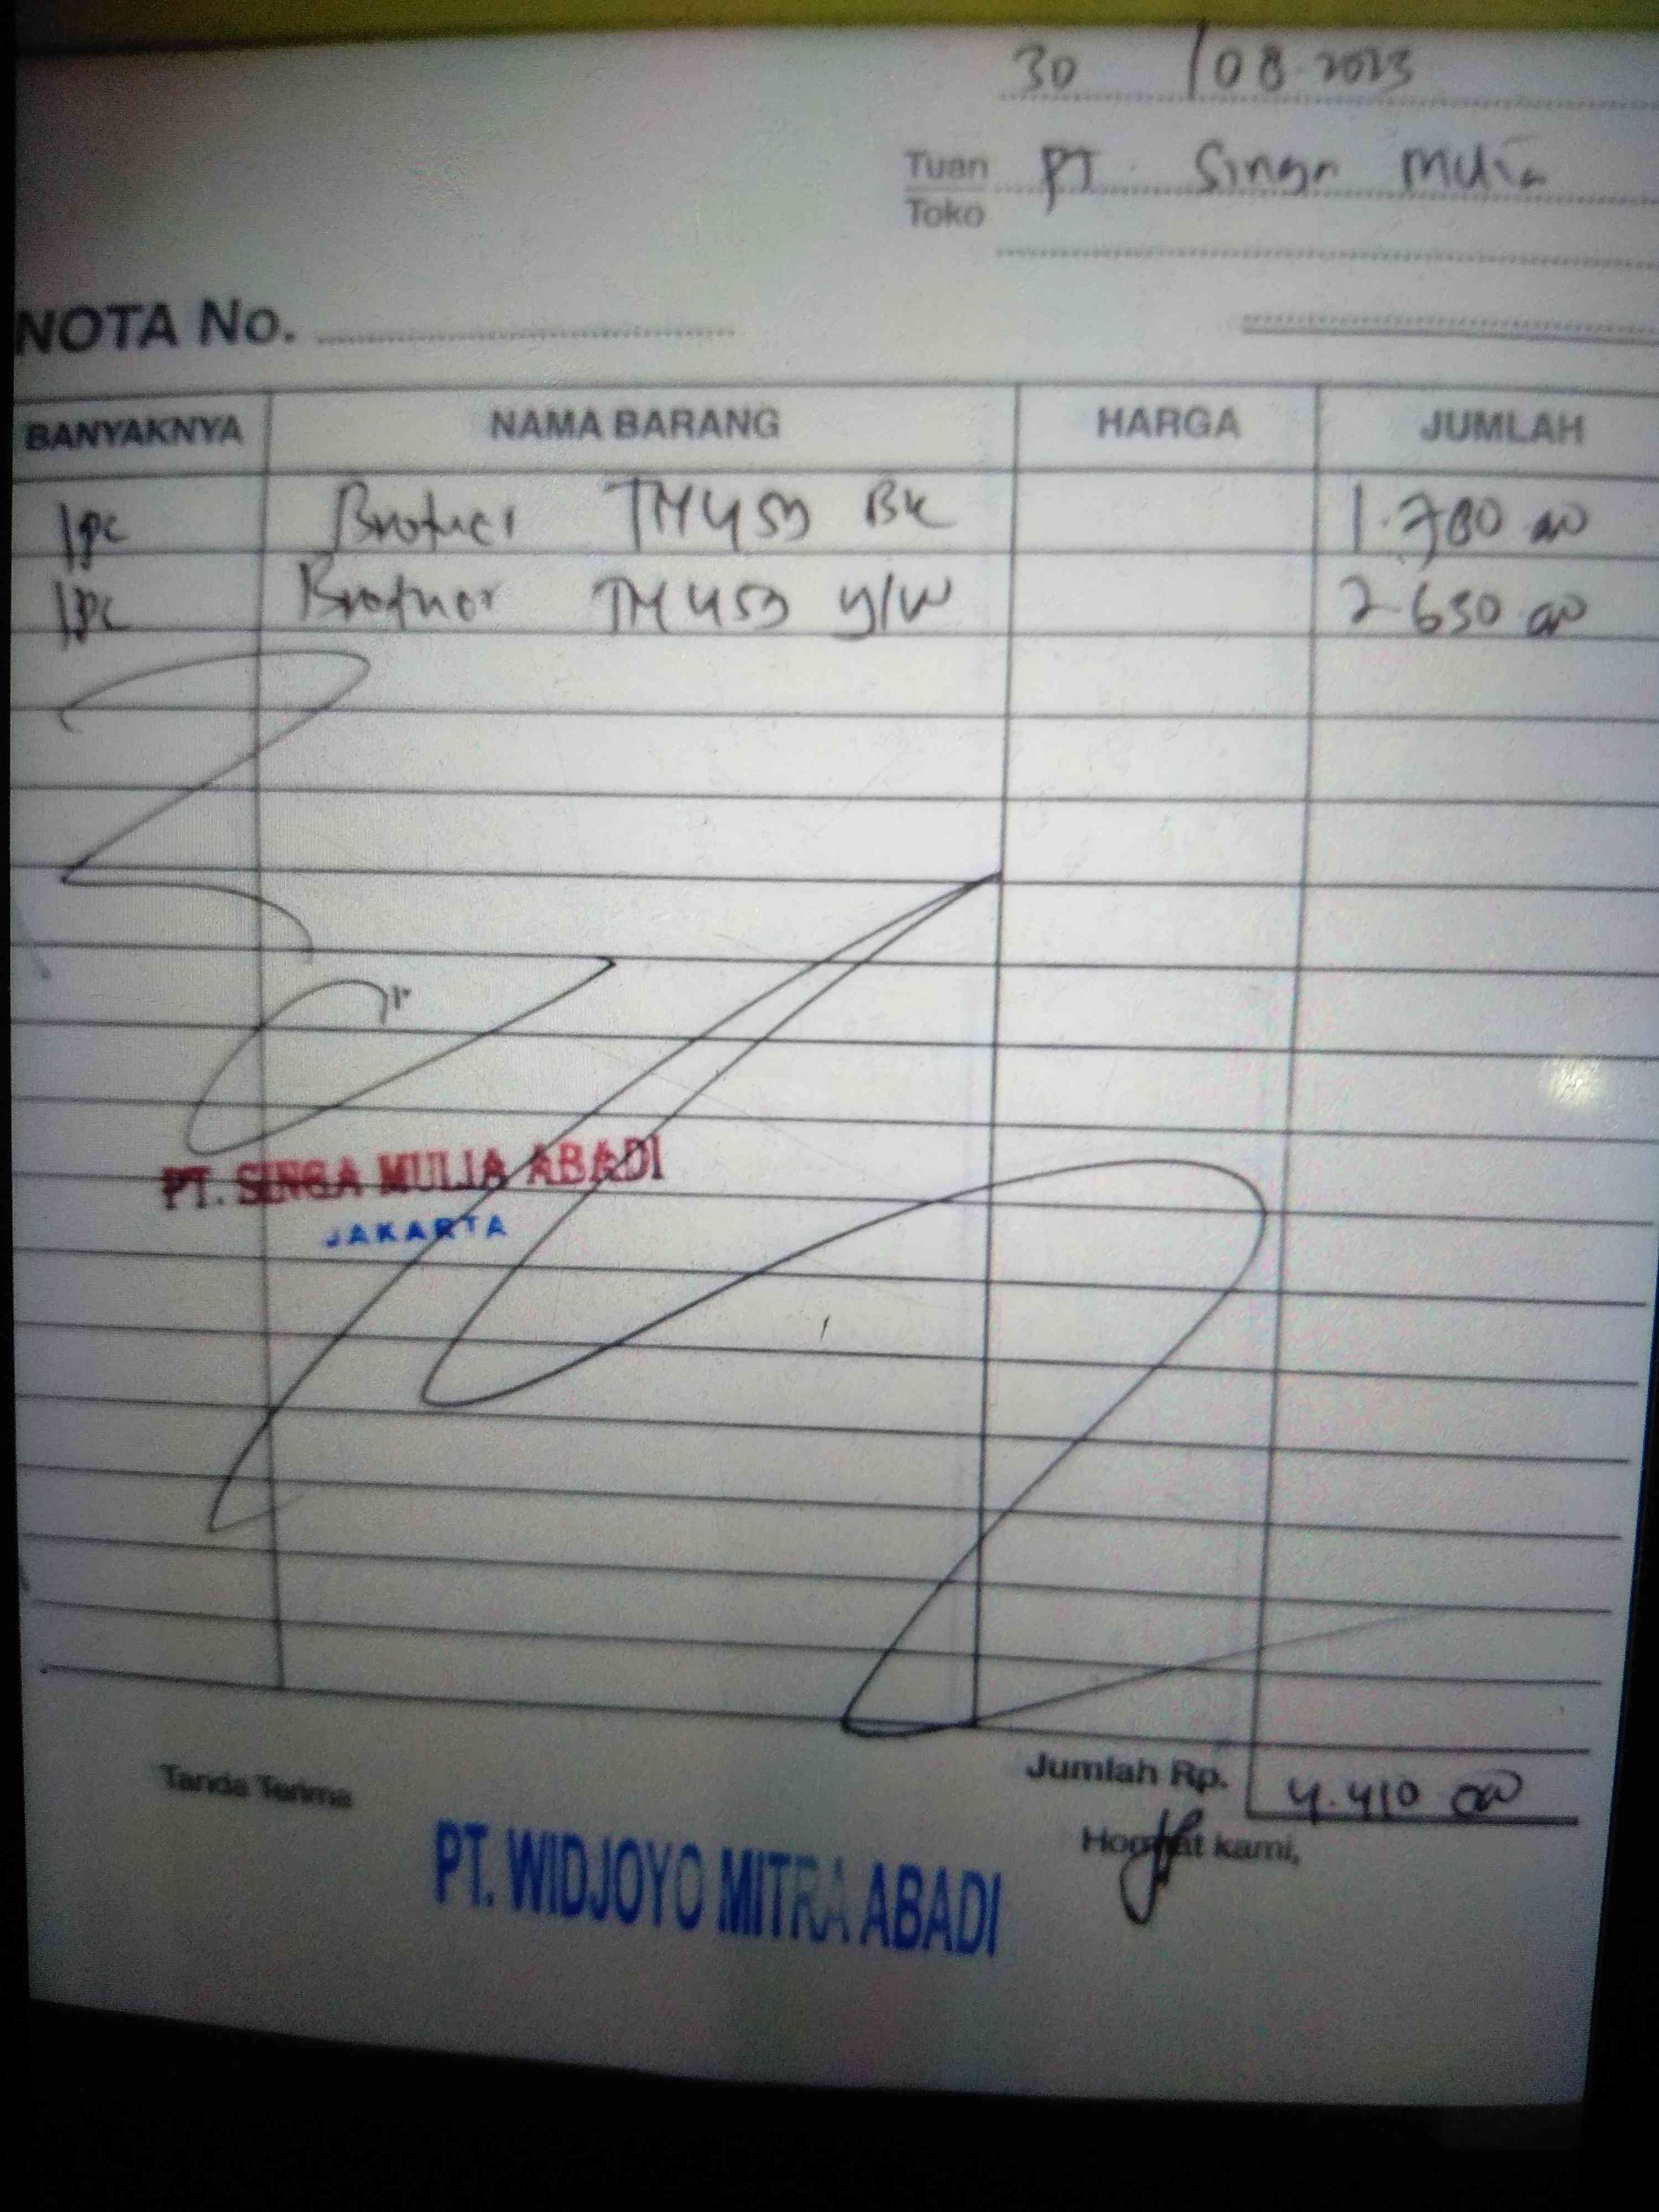 30 /08-2023
Tuan PT. Singa Mulia
Toko
NOTA No.
BANYAKNYA NAMA BARANG HARGA JUMLAH
1pc Brother TN459 BK 1.780.000
1pc Brother TN459 Y/W 2.630.000
PT. SINGA MULIA ABADI
JAKARTA
Jumlah Rp. 4.410.000
Tanda Terima
Hormat kami,
PT. WIDJOYO MITRA ABADI